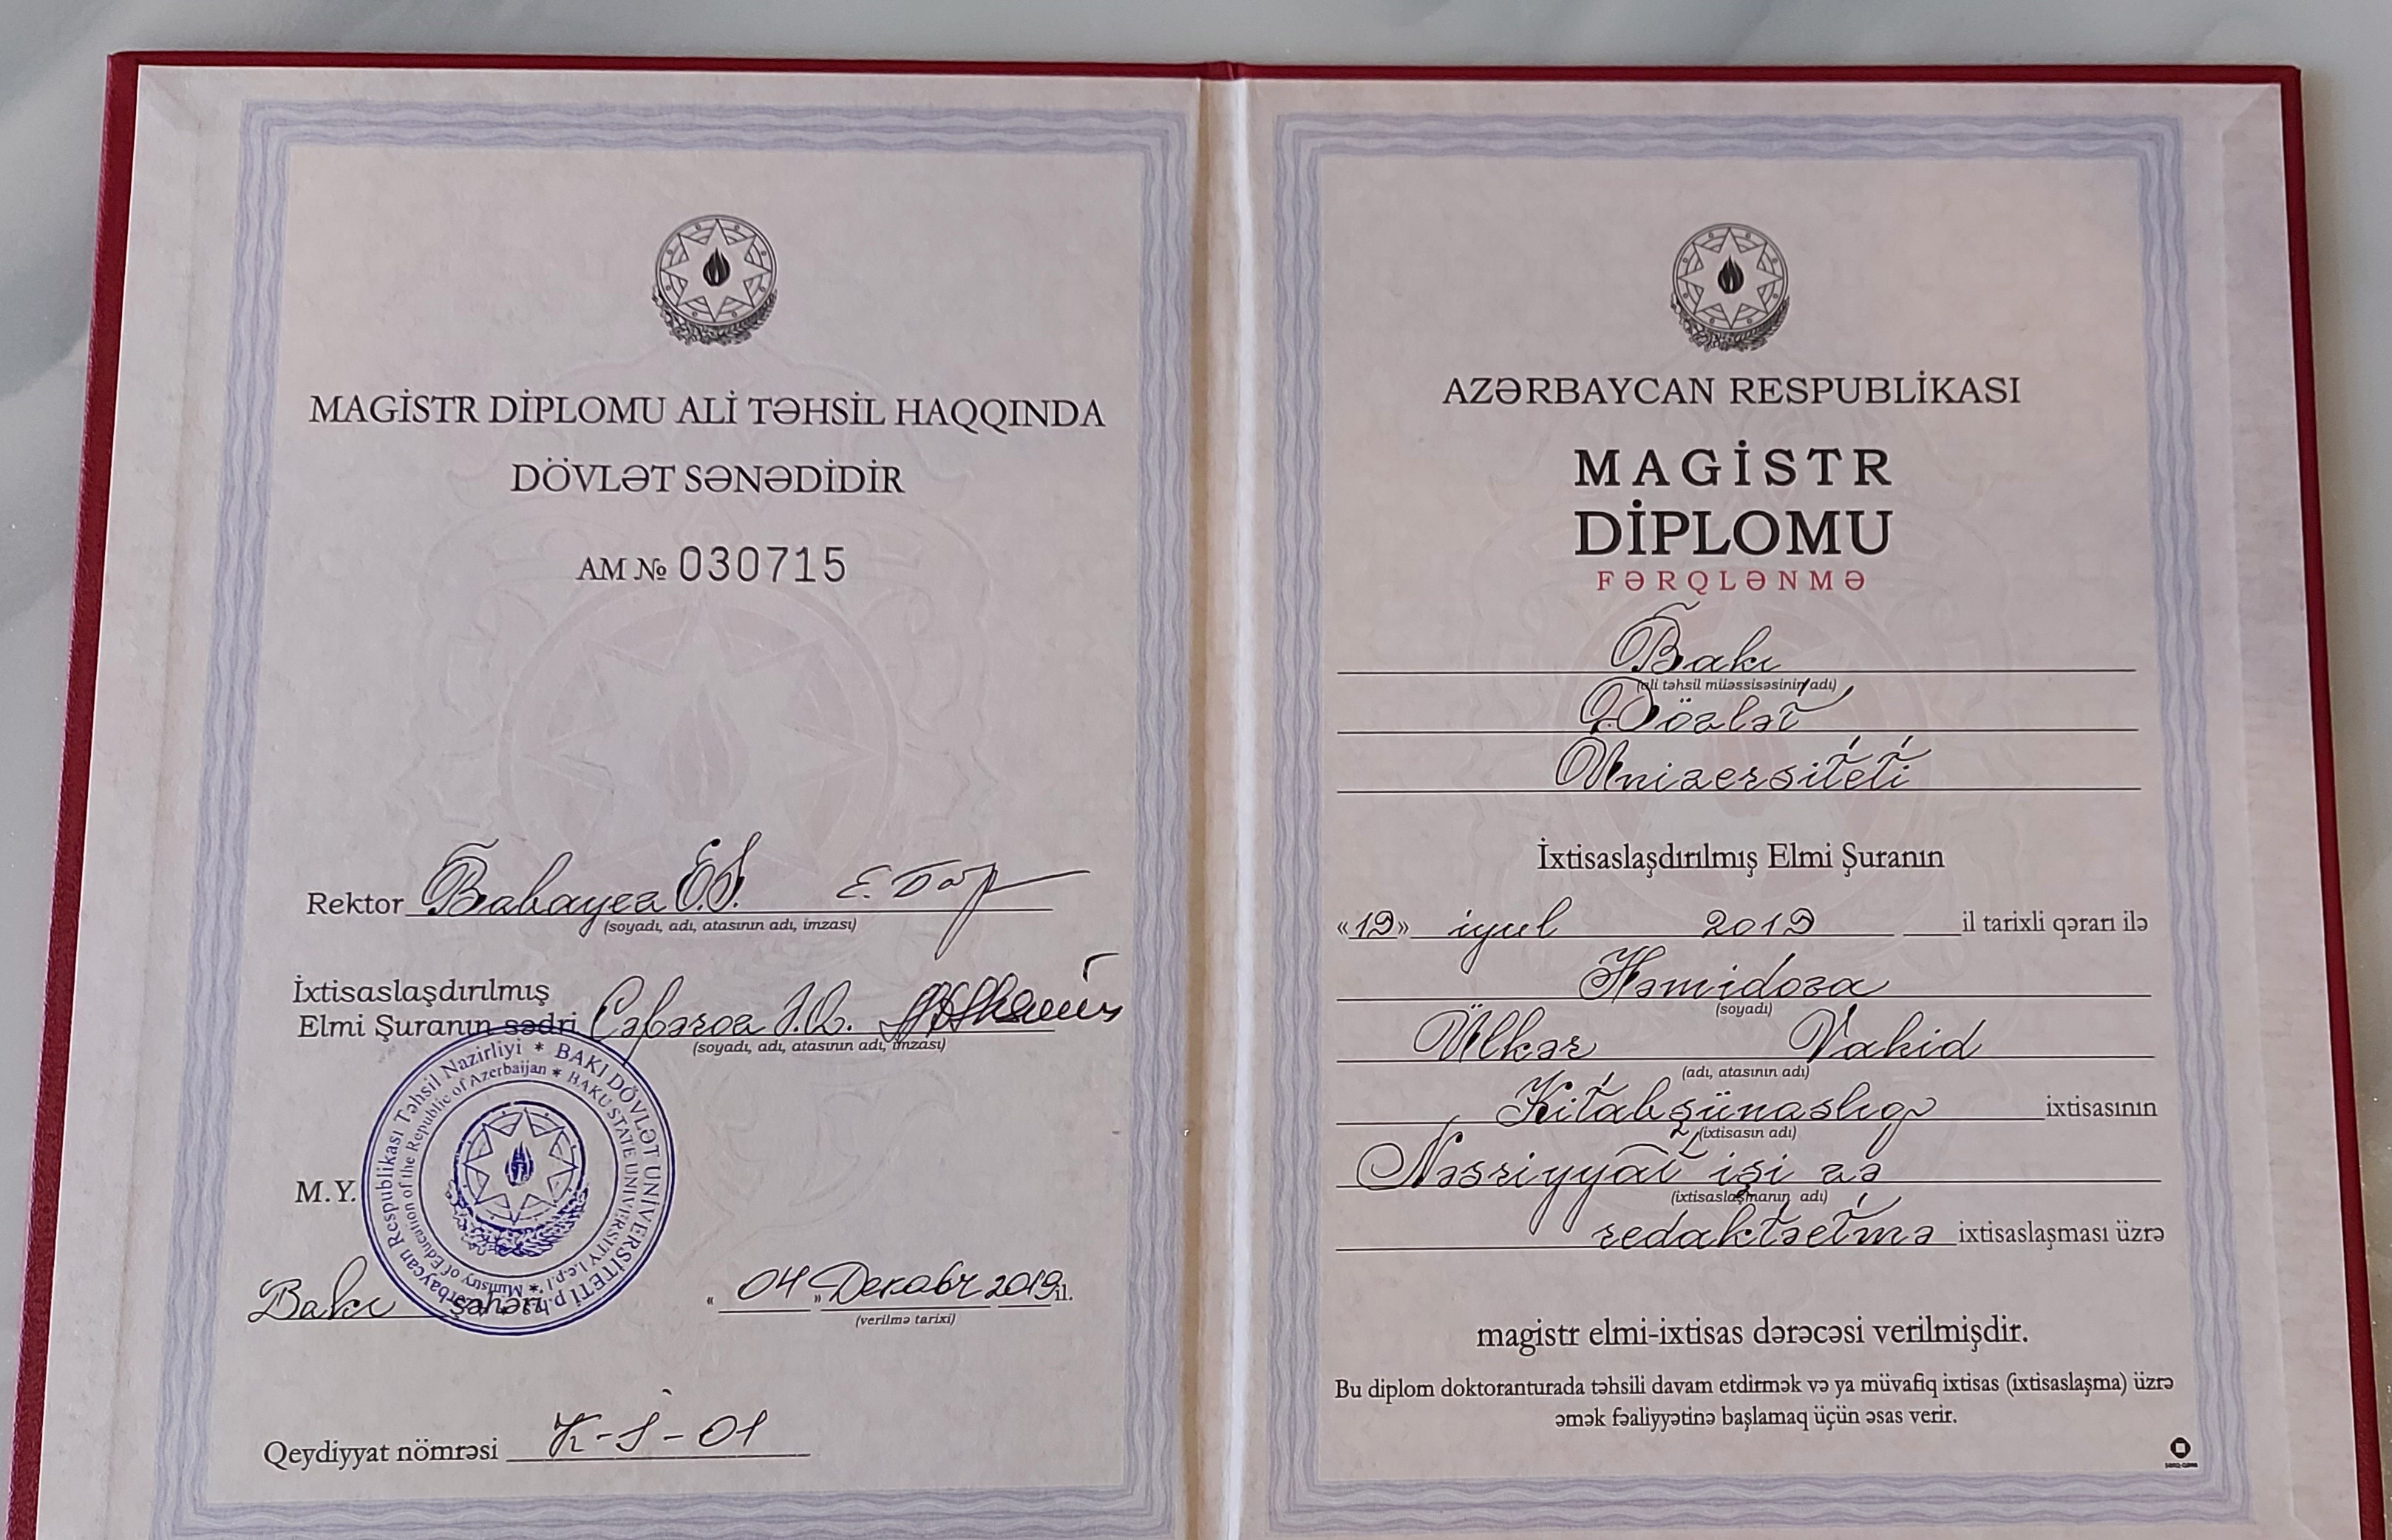 MAGİSTR DİPLOMU ALİ TƏHSİL HAQQINDA
DÖVLƏT SƏNƏDİDİR
AM № 030715
Rektor Babayev E.S.
(soyadı, adı, atasının adı, imzası)
İxtisaslaşdırılmış
Elmi Şuranın sədri
(soyadı, adı, atasının adı, imzası)
Azərbaycan Respublikası Təhsil Nazirliyi * BAKI DÖVLƏT UNİVERSİTETİ p.h.ş.
Ministry of Education of the Republic of Azerbaijan * BAKU STATE UNIVERSITY l.e.p.l.
M.Y.
Bakı şəhəri «04» Dekabr 2019 il.
(verilmə tarixi)
Qeydiyyat nömrəsi
AZƏRBAYCAN RESPUBLİKASI
MAGİSTR
DİPLOMU
FƏRQLƏNMƏ
Bakı
(ali təhsil müəssisəsinin adı)
Dövlət
Universiteti
İxtisaslaşdırılmış Elmi Şuranın
«19» iyul 2019 il tarixli qərarı ilə
Həmidova
(soyadı)
Ülkər Vahid
(adı, atasının adı)
Kitabşünaslıq ixtisasının
(ixtisasın adı)
Nəşriyyat işi və
(ixtisaslaşmanın adı)
redaktəetmə ixtisaslaşması üzrə
magistr elmi-ixtisas dərəcəsi verilmişdir.
Bu diplom doktoranturada təhsili davam etdirmək və ya müvafiq ixtisas (ixtisaslaşma) üzrə
əmək fəaliyyətinə başlamaq üçün əsas verir.